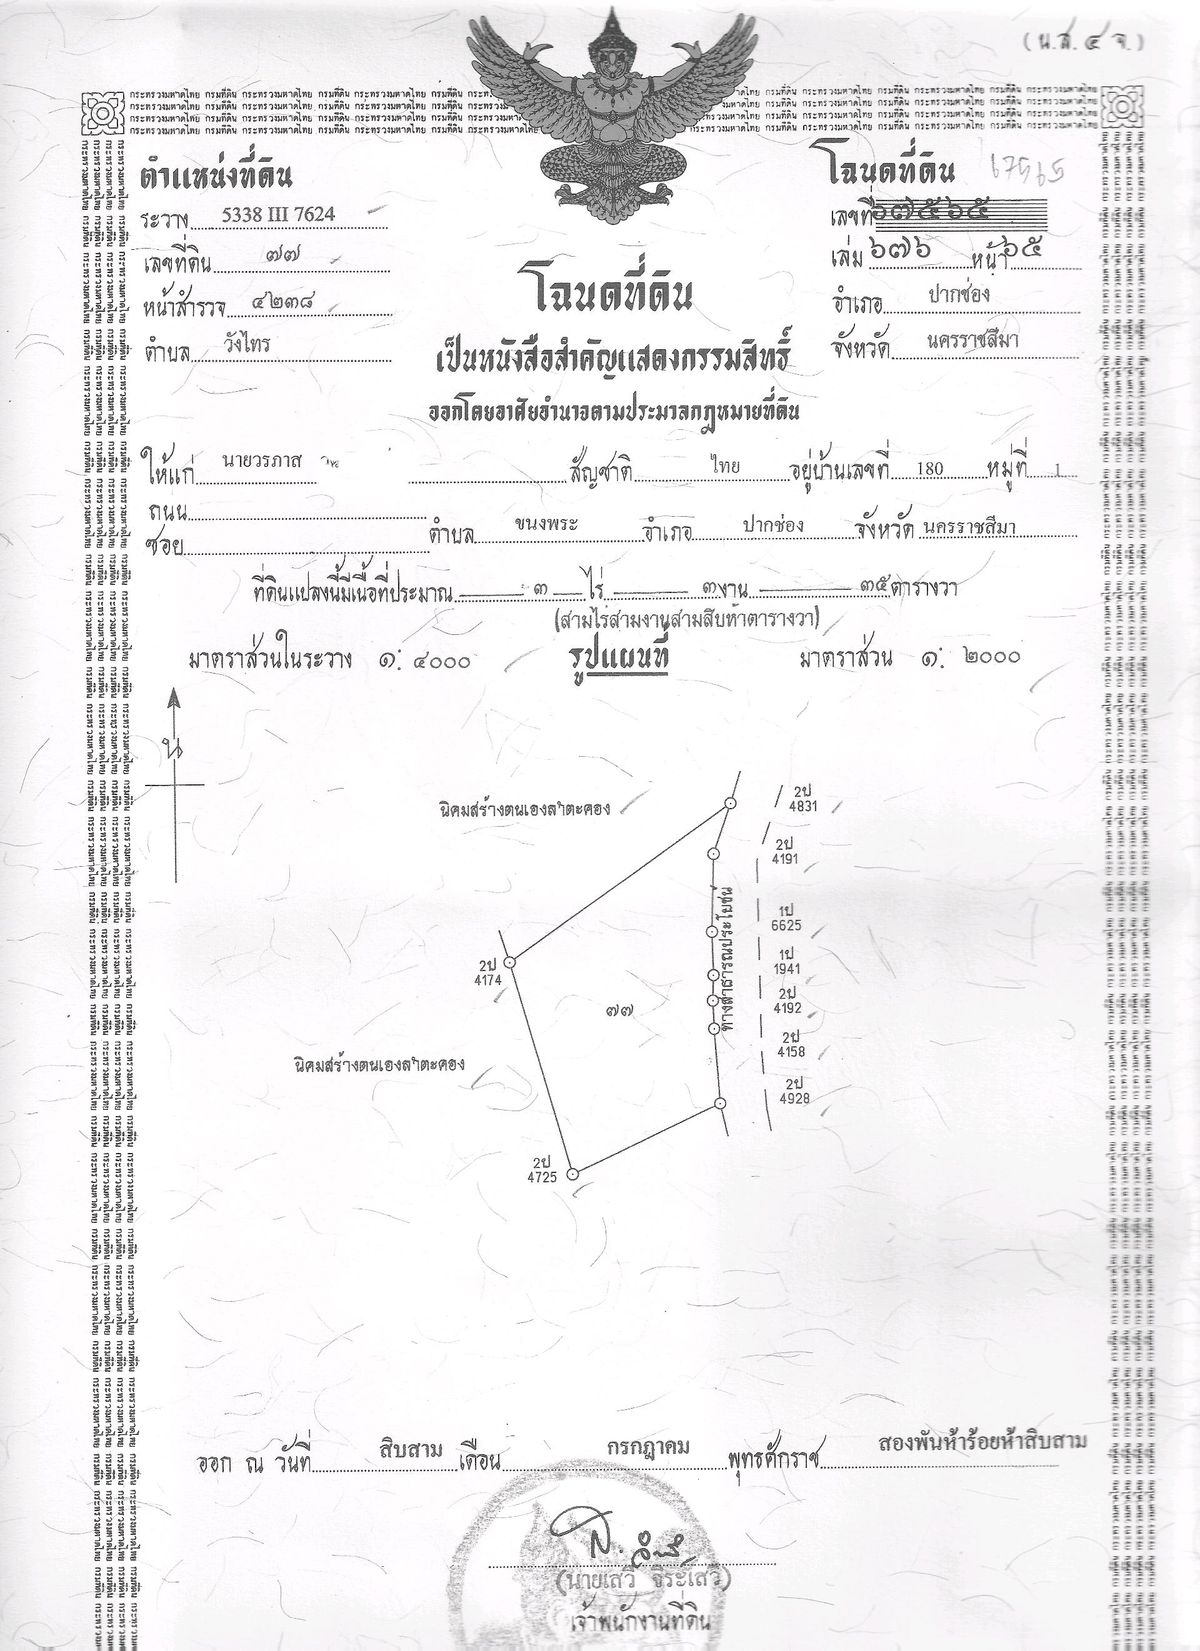 (น.ส. ๔ จ.)
กระทรวงมหาดไทย กรมที่ดิน กระทรวงมหาดไทย กรมที่ดิน กระทรวงมหาดไทย กรมที่ดิน
ตำแหน่งที่ดิน
ระวาง 5338 III 7624
เลขที่ดิน ๗๗
หน้าสำรวจ ๔๒๓๘
ตำบล วังไทร
โฉนดที่ดิน 67565
เลขที่ ๖๗๕๖๕
เล่ม ๖๗๖ หน้า ๖๕
อำเภอ ปากช่อง
จังหวัด นครราชสีมา
โฉนดที่ดิน
เป็นหนังสือสำคัญแสดงกรรมสิทธิ์
ออกโดยอาศัยอำนาจตามประมวลกฎหมายที่ดิน
ให้แก่ นายวรภาส สัญชาติ ไทย อยู่บ้านเลขที่ 180 หมู่ที่ 1
ถนน
ซอย ตำบล ขนงพระ อำเภอ ปากช่อง จังหวัด นครราชสีมา
ที่ดินแปลงนี้มีเนื้อที่ประมาณ ๓ ไร่ ๓ งาน ๓๕ ตารางวา
(สามไร่สามงานสามสิบห้าตารางวา)
มาตราส่วนในระวาง ๑: ๔๐๐๐ รูปแผนที่ มาตราส่วน ๑: ๒๐๐๐
น
นิคมสร้างตนเองลำตะคอง
2ป
4831
2ป
4191
1ป
6625
1ป
1941
2ป
4192
2ป
4158
2ป
4928
ทางสาธารณประโยชน์
2ป
4174
๗๗
นิคมสร้างตนเองลำตะคอง
2ป
4725
ออก ณ วันที่ สิบสาม เดือน กรกฎาคม พุทธศักราช สองพันห้าร้อยห้าสิบสาม
(นายเสวี จิระเสวี)
เจ้าพนักงานที่ดิน